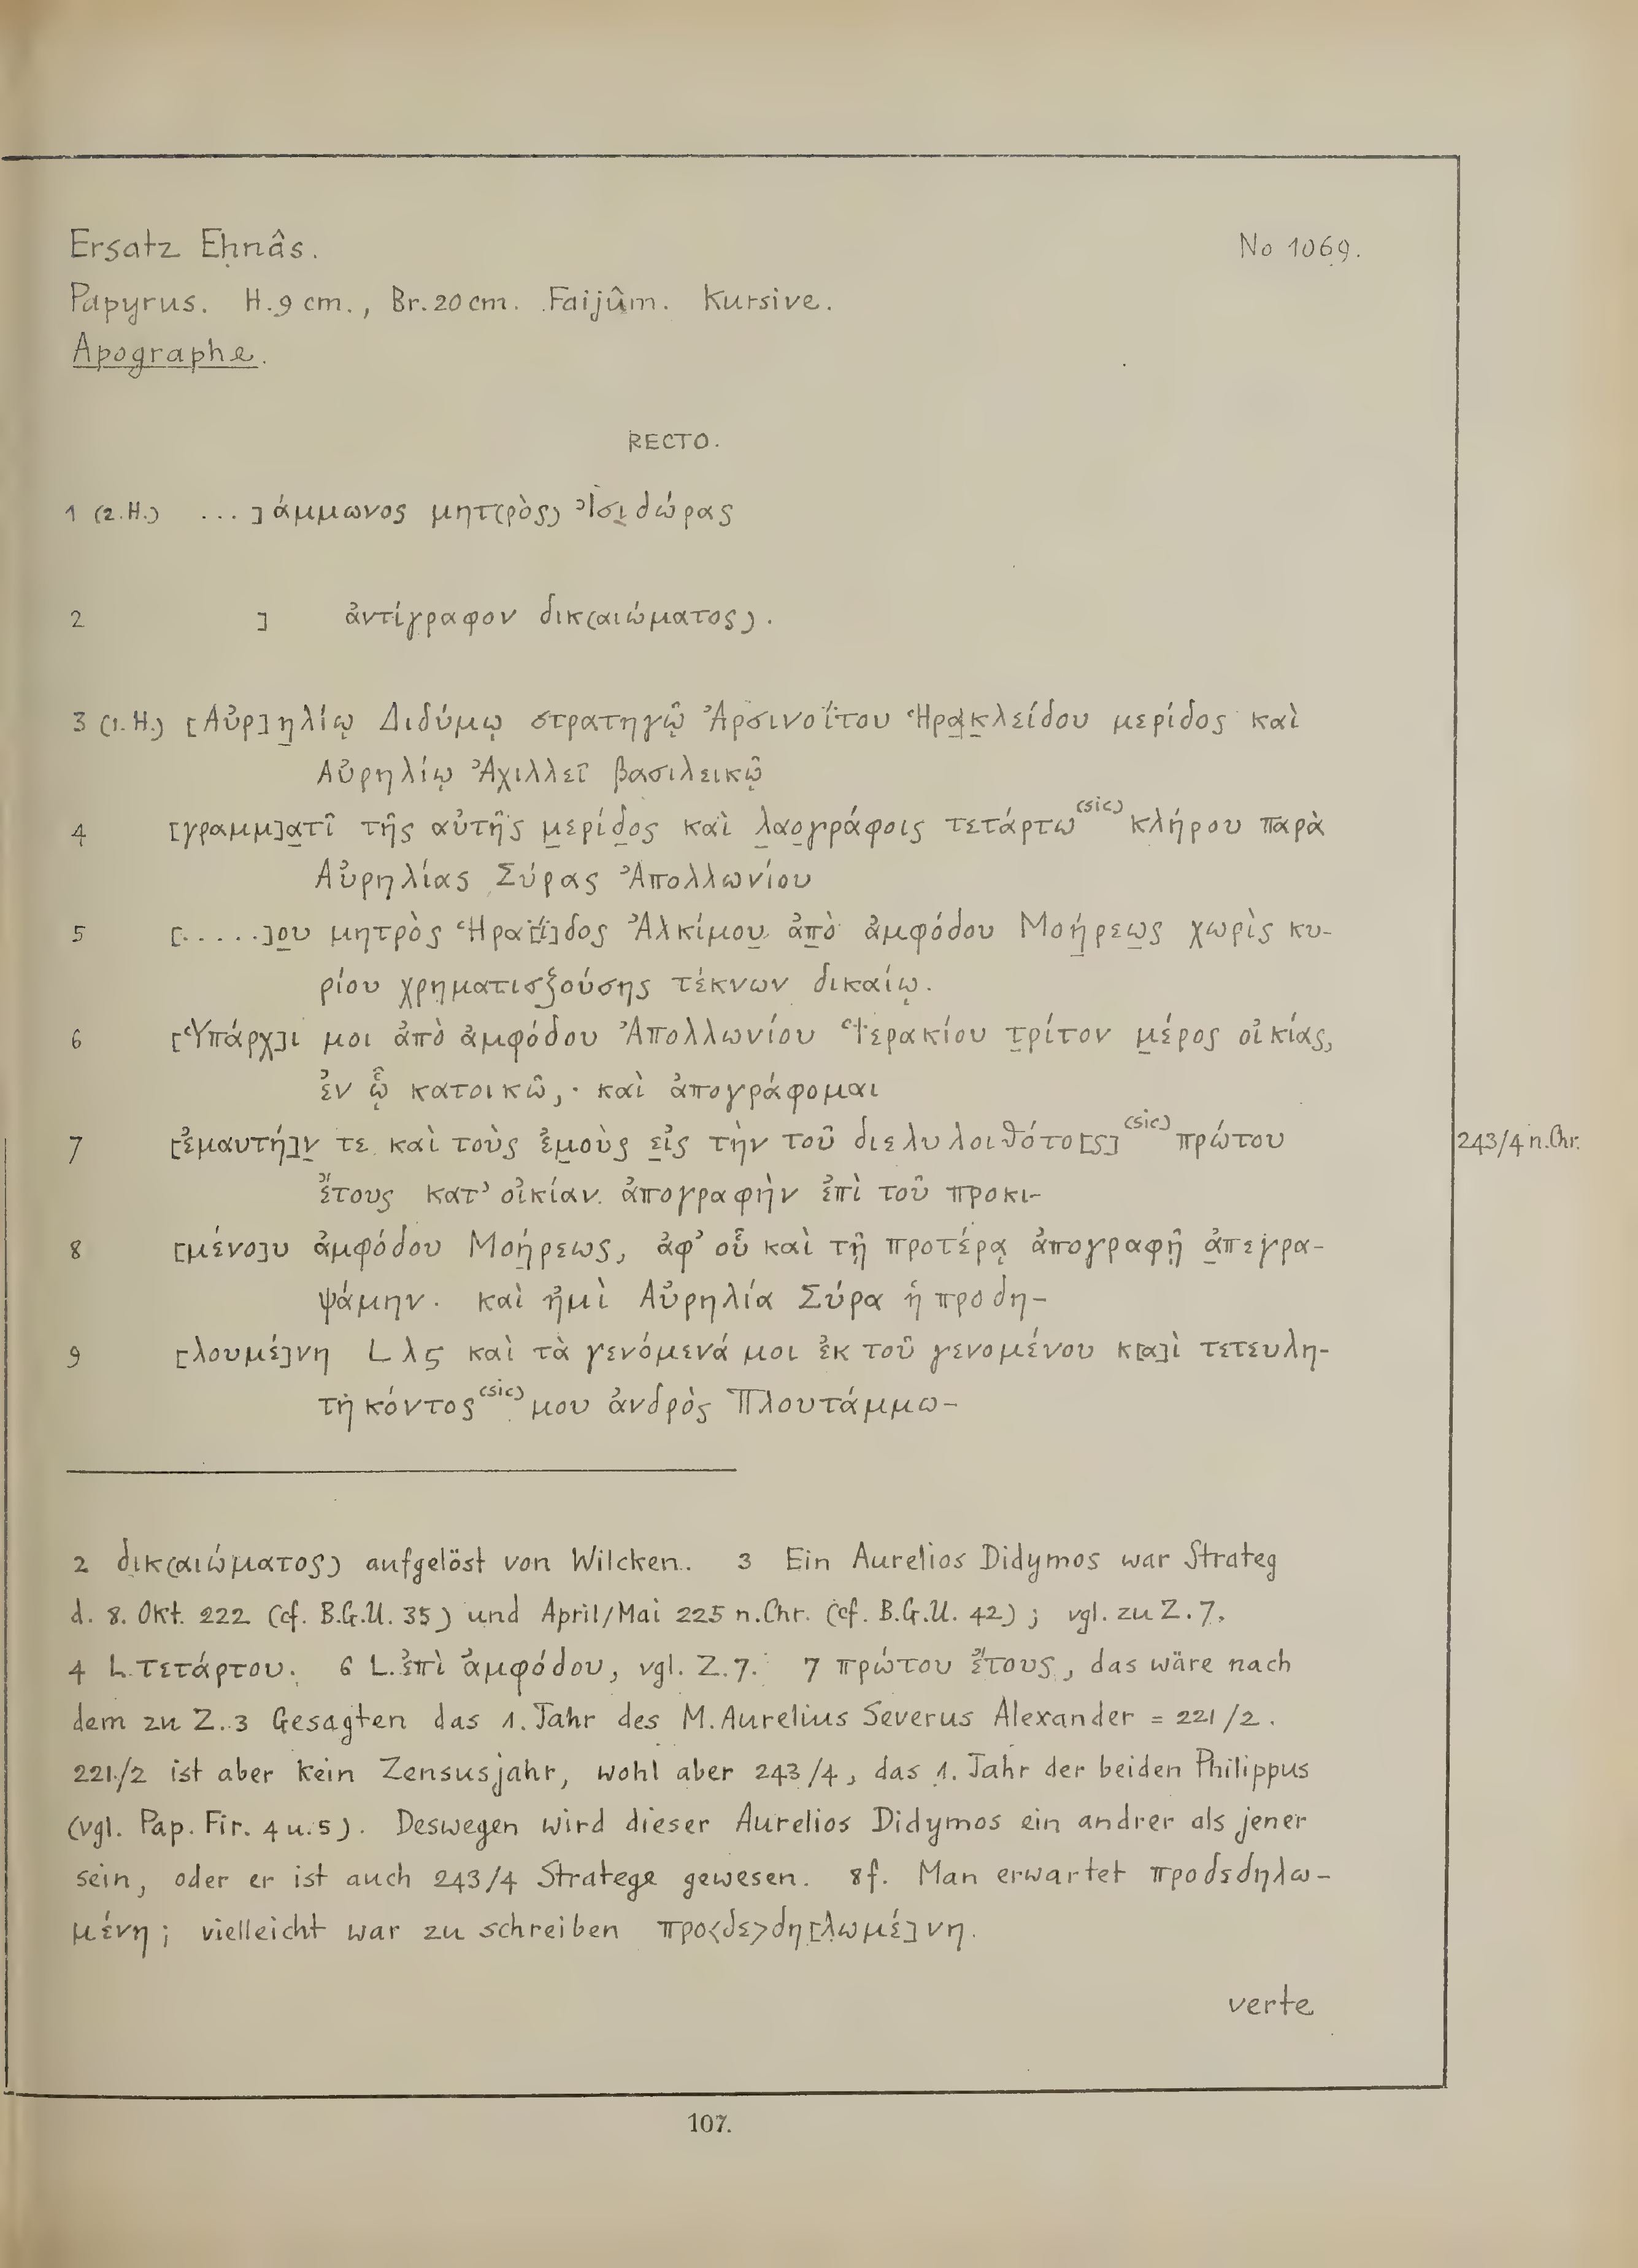 Ersatz Eḥnâs. No 1069.
Papyrus. H. 9 cm., Br. 20 cm. Faijûm. Kursive.
Apographe.
RECTO.
1 (2. H.) ...]άμμωνος μητ(ρὸς) Ἰσι̣δώρας
2 ] ἀντίγραφον δικ(αιώματος).
3 (1. H.) [Αὐρ]η̣λίῳ Διδύμῳ στρατηγῷ Ἀρσινοΐτου Ἡρα̣κ̣λείδου μερίδος καὶ
Αὐρηλίῳ Ἀχιλλεῖ βασιλεικῷ
4 [γραμμ]α̣τῖ τῆς αὐτῆς μ̣ερίδ̣ος καὶ λ̣αο̣γράφοις τετάρτω(sic) κλήρου παρὰ
Αὐρηλίας Σύρας Ἀπολλωνίου
5 [.....]ο̣υ μητρὸς Ἡρα[ΐ]δος Ἀλκίμου̣ ἀπ̣ὸ ἀμφόδου Μοή̣ρεω̣ς χωρὶς κυ-
ρίου χρηματισζούσης τέκνων δικαίῳ.
6 [Ὑπάρχ]ι μοι ἀπὸ ἀμφόδου Ἀπολλωνίου Ἱερακίου τ̣ρίτον μ̣έρος οἰκίας,
ἐν ᾧ κατοικῶ, · καὶ ἀπογράφομαι
7 [ἐμαυτή]ν̣ τε καὶ τοὺς ἐμ̣οὺς ε̣ἰς τὴν τοῦ διελυλοιθότο[ς](sic) πρώτου
243/4 n. Chr.
ἔτους κατ’ οἰκίαν ἀπογραφὴν ἐπὶ τοῦ προκι-
8 [μένο]υ ἀμφόδου Μοή̣ρεως, ἀφ’ οὗ καὶ τῇ προτέρᾳ ἀπογραφῇ ἀ̣πεγρα-
ψάμην. καὶ ἠμὶ Αὐρηλία Σύρα ἡ προδη-
9 [λουμέ]νη L λϛ καὶ τὰ γενόμενά μοι ἐκ τοῦ γενομένου κ[α]ὶ τετευλη-
τηκόντος(sic) μου ἀνδρὸς Πλουτάμμω-
2 δικ(αιώματος) aufgelöst von Wilcken. 3 Ein Aurelios Didymos war Strateg
d. 8. Okt. 222 (cf. B.G.U. 35) und April/Mai 225 n. Chr. (cf. B.G.U. 42); vgl. zu Z. 7.
4 L. τετάρτου. 6 L. ἐπὶ ἀμφόδου, vgl. Z. 7. 7 πρώτου ἔτους, das wäre nach
dem zu Z. 3 Gesagten das 1. Jahr des M. Aurelius Severus Alexander = 221/2.
221/2 ist aber kein Zensusjahr, wohl aber 243/4, das 1. Jahr der beiden Philippus
(vgl. Pap. Fir. 4 u. 5). Deswegen wird dieser Aurelios Didymos ein andrer als jener
sein, oder er ist auch 243/4 Stratege gewesen. 8f. Man erwartet προδεδηλω-
μένη; vielleicht war zu schreiben προ<δε>δη[λωμέ]νη.
verte
107.